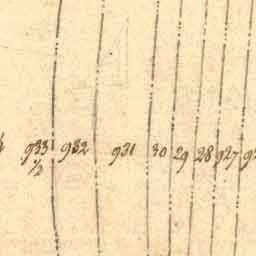 933 932 931 30 29 28 927
1/2